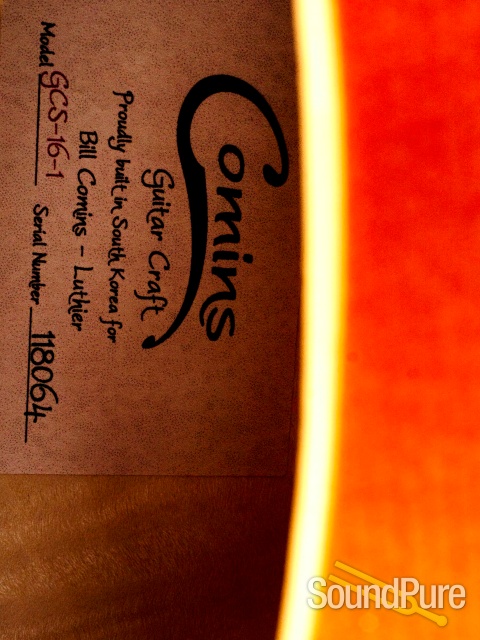 Comins
Guitar Craft
Proudly built in South Korea for
Bill Comins - Luthier
Model GCS-16-1 Serial Number 118064
SoundPure